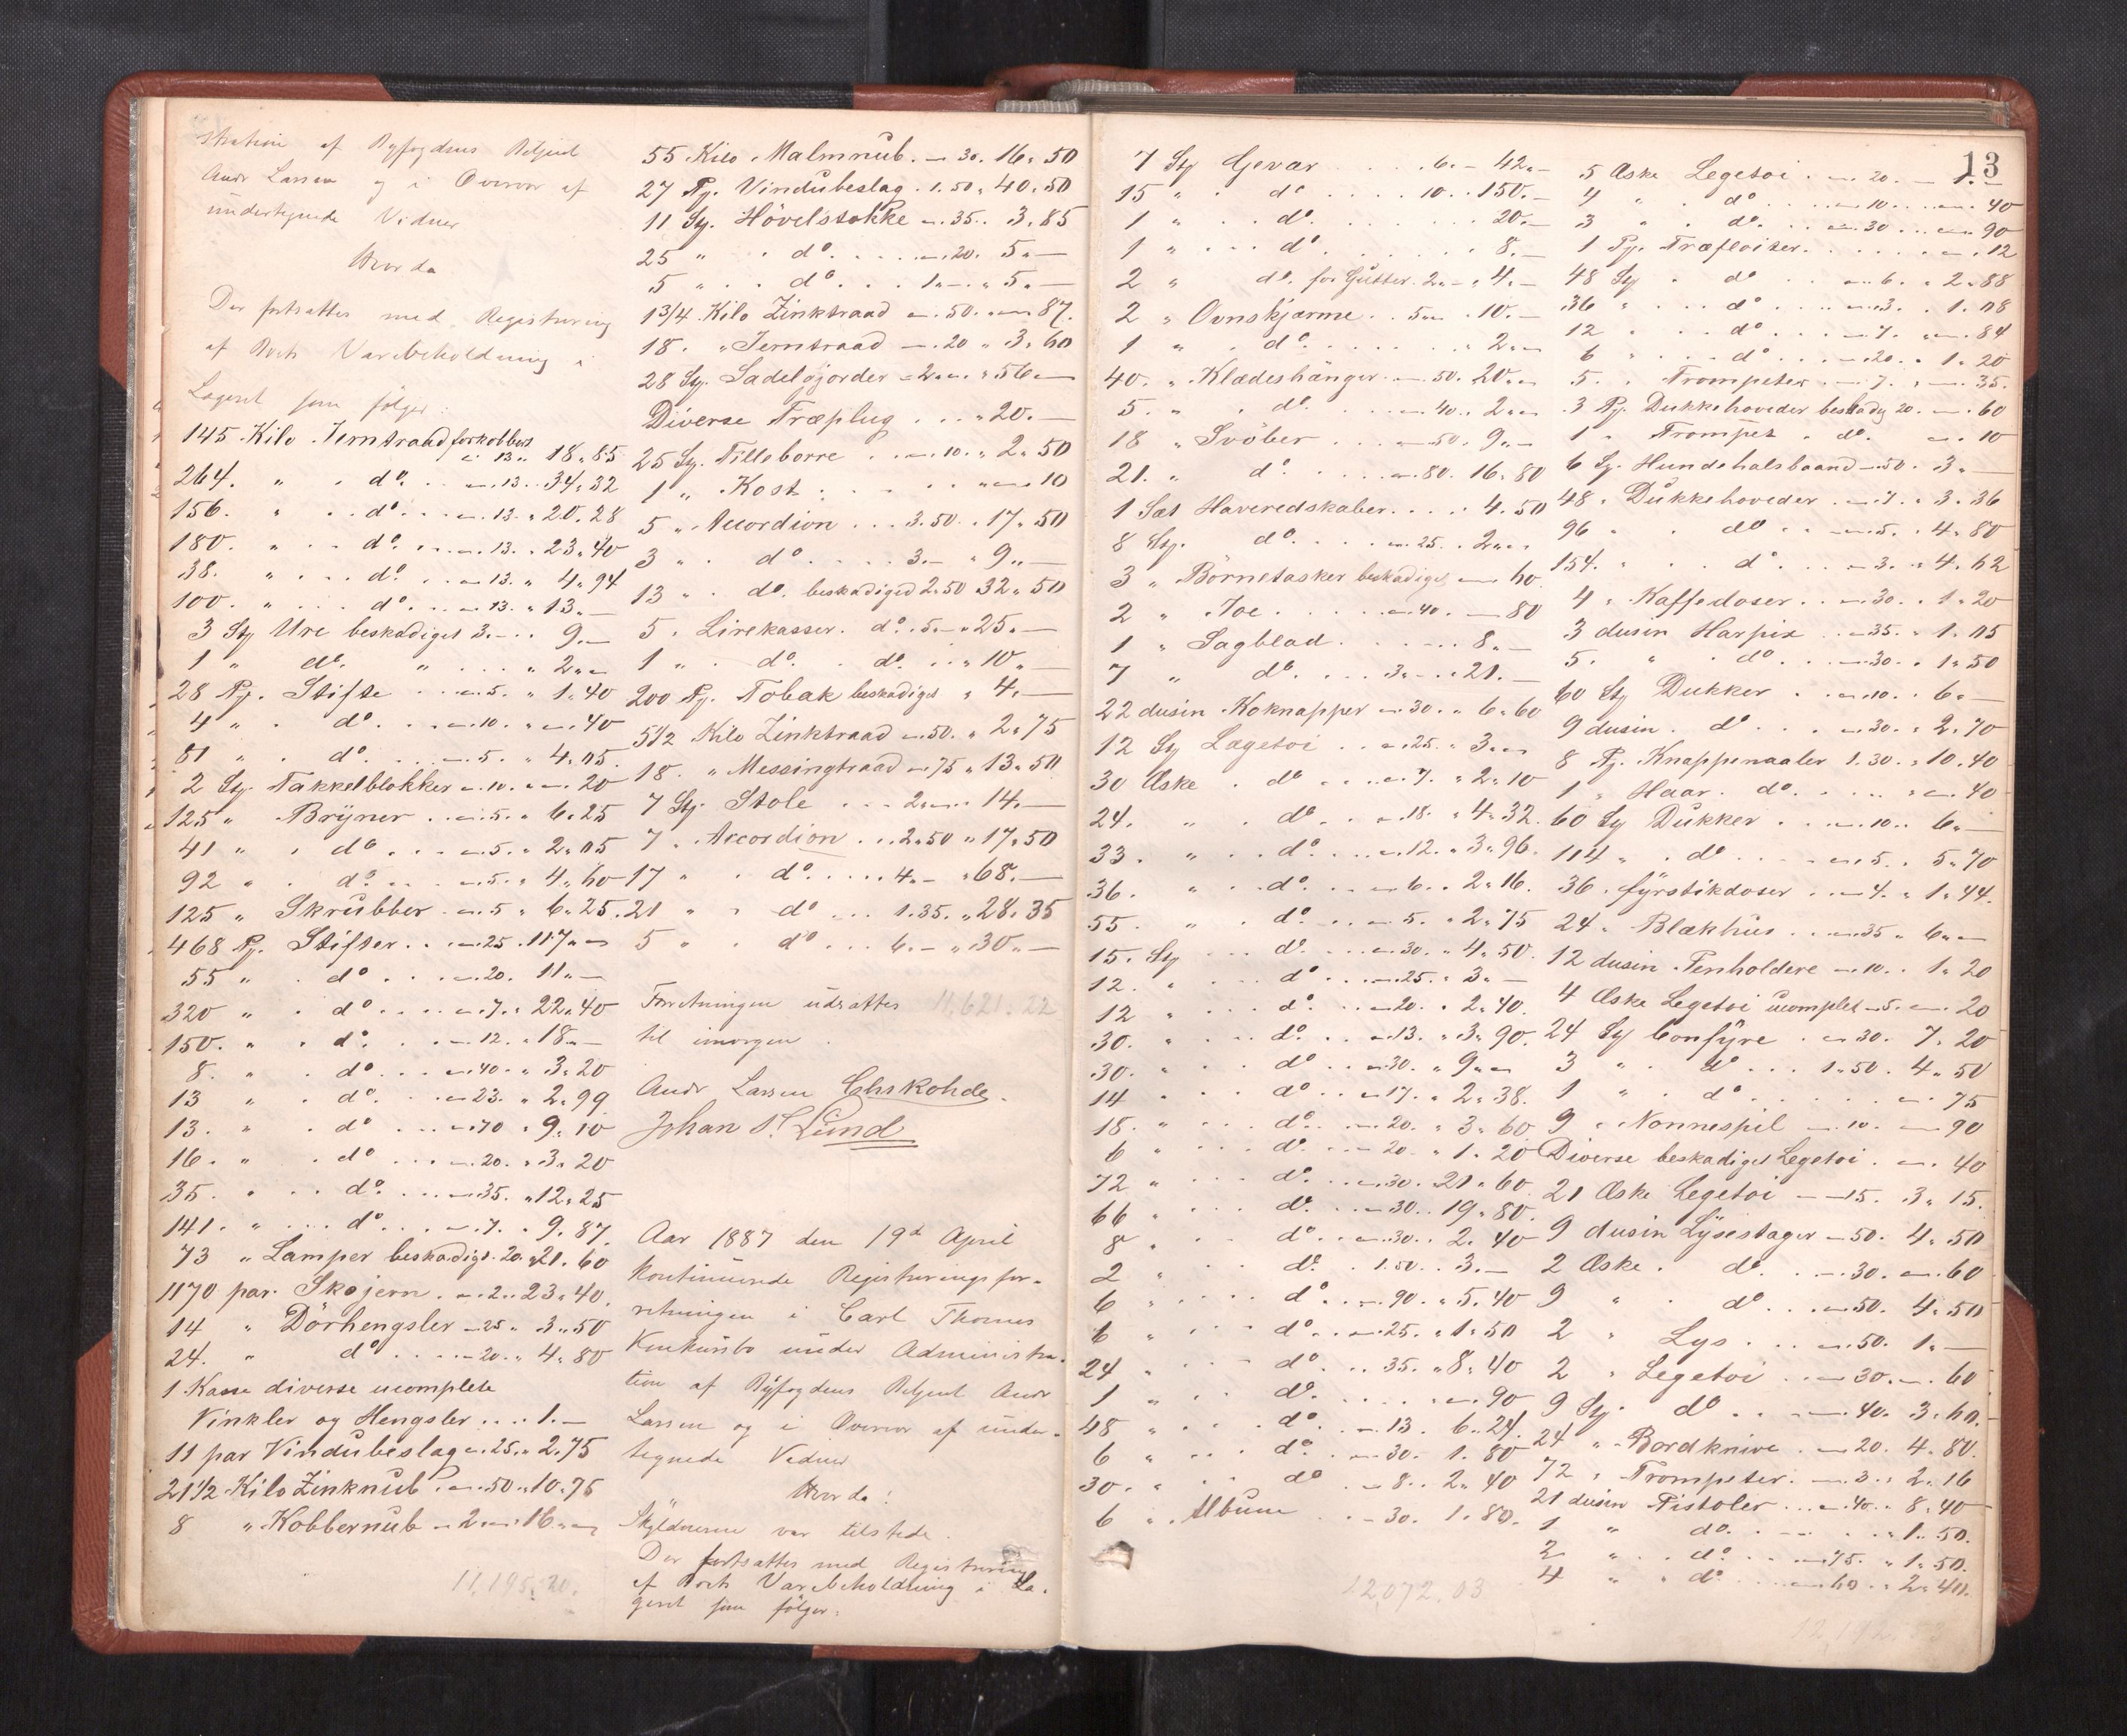 stration af Byfogdens Betjent
Andr Larsen og i Overvær af
undertegnede Vidner
Hvorda
Der fortsattes med Registrering
af Boets Varebeholdning i
Lageret som følger:
145 Kilo Jerntraad forkobbert
" 13 " 18 " 85
264. " . do . . " 13 . . 34 " 32
156. " . . do . . . " 13 . " 20 . 28
180. " . . do . . . " 13. " 23 " 40
38. " . . . do . . " 13. " 4 " 94
100. " . . . do . . " 13. " 13. —
3 Sty Ure beskadiget 3. — . . 9. —
1 " do. " . . . " 2 " "
28 Pj. Stifte . . . " 5. " 1 " 40
4 " . do . . . " 10. " " . 40
81 " . do . . . " 5. " 4. 05.
2 Sty. Takkelblokker " 10. " " . 20
125 " Bryner . . " 5. " 6 " 25
41 " . do . . . " 5. " 2 " 05
92 " . do . . . " 5. " 4 " 60
125 " Skrubber . " 5 " 6 " 25.
468 Pj. Stifter . . " 25 . 117 " "
55 " . do . . . " 20. 11 " —
320 " . do . . . . " 7. " 22 " 40
150. " . do . . . " 12. " 18 " —
8. " . do . . . " 40. " 3 " 20
13 " . do . . . " 23. " 2 " 99
13. " . do . . . " 70 " 9. 10
16. " . do . . . " 20. " 3 " 20
35. " . . do . . . " 35. " 12 " 25
141. " . . . do . . . " 7. " 9. 87.
73 " Lamper beskadigt. 20. " 21. 60
1170 par. Skojern . " 2 . . 23 " 40.
14 " Dörhengsler " 25 " 3 " 50
24. " do . . . " 20. " 4 " 80
1 Kasse diverse ucomplete
Vinkler og Hengsler . . . . 1. —
11 par Vindubeslag " 25. " 2. 75
21 1/2 Kilo Zinknub . " 50 " 10 " 75
8 " Kobbernub " 2 " " 16 " "
11,195.20.
55 Kilo Malmnub. " 30. 16 " 50
27 Pj. Vindubeslag . 1. 50 " 40 " 50
11 Sty. Hövelstokke " 35. . 3. 85
25 " . do . . . . " 20. 5 " —
5 " . . do . . . 1 " — " 5 " —
1 3/4 Kilo Zinktraad " 50. " " 87.
18. " Jerntraad " 20 " 3 " 60
28 Sty. Sadelgjorder " 2 " " " 56 " —
Diverse Træplug . . . " 20. —
25 Sty. Tilleborre . . " 10. " 2 " 50
1 " Kost . . . . . " " 10
5 " Accordion . . . 3. 50. " 17 " 50
3 " . do . . . . 3. — " 9 " —
13 " . do. beskadiged 2 " 50 32 " 50
5 " Lirekasser. do. . 5. — " 25. —
1 " . do. . do. . . " 10 " —
200 Pj. Tobak beskadiget " 4. —
5 1/2 Kilo Zinktraad " 50. " 2 " 75
18. " Messingtraad " 75 " 13 " 50
7 Sty. Stole . . . 2 " " 14. —
7 " Accordion . . 2 " 50 " 17 " 50
17 " . do . . . . 4. — " 68. —
21 " . do . . . 1. 35. " 28. 35
5 " . do . . . 6. — " 30 " —
Forretningen udsattes 11,621.22
til imorgen.
Andr Larsen Chs Rohde.
Johan P. Lund
Aar 1887 den 19d April
kontinuerede Registreringsfor-
retningen i Carl Thomes
Konkursbo under Administra-
tion af Byfogdens Betjent Andr
Larsen og i Overvær af under-
tegnede Vidner
Hvorda:
Skyldneren var tilstede.
Der fortsattes med Registrering
af Boets Varebeholdning i La-
geret som følger:
13
7 Sty Gevær . . . . 6. — 42 " —
15 " . do . . . . 10 . . 150. —
1 " . . do. . . . . . . 20. —
1 " . . . do . . . . . . . 8. —
2 " do. for Gutter. 2 " — " 4. —
2 " Ovnskjærme . . 5 " " . 10. —
1 " . do . . . . . . " 2 " "
40. " Klædeshænger . " 50. 20 " "
5. " . do . . . . " 40. " 2 " "
18 " Svöber . . . " 50. 9 " —
21. " . do . . . . " 80. 16. 80
1 Sæt Haveredskaber . . . . 4. 50
8 Sty. do . . . . " 25. . 2 " "
3 " Börnetasker beskadiget " 60.
2 " Joe . . . . . " 40. " 80
1 " Sagblad . . . . . . 8 " —
7 " do . . . . 3. — " 21. —
22 dusin Koknapper " 30. " 6 " 60
12 Sty Lægetøi . . " 25. " 3 " "
30 Æske . do . . . " 7. " 2 " 10
24. " . do . . " 18. " 4 " 32.
33. " . . do . . . " 12. " 3 " 96.
36. " . . do . . . " 6. " 2 " 16.
55. " . do . . . " 5. " 2 " 75
15. Sty . . . do . . . " 30. " 4 " 50.
12. " . . . do . . . " 25. " 3 " —
12 " . . . do . . . " 20. " 2 " 40.
30. " . . . do . . . " 13. " 3 " 90.
30. " . . do . . . " 30. " 9 " "
14 " . . do . . . " 17. " 2 " 38.
18. " . . . do . . . " 20. " 3 " 60
6 " . . . do . . . " 20. " 1 " 20
72 " . . . do . . . " 30. 21 " 60
66 " . . . do . . . " 30. . 19 " 80.
8 " . . do . . . " 30. . 2. 40
2 " . . do . . 1. 50. . 3. —
6 " . . . do . . . " 90. " 5. 40
6 " . . . do . . . " 25. " 1 " 50
24 " . . do . . . 35. " 8 " 40
1 " . . do. . . . . " 90
48 " . . . do . . " 13 . 6 " 24.
6 " . . do . . . " 30. 1. 80
30. " . . do . " 8. . 2 " 40
6 " Album . . " 30. 1 " 80.
12,072.03
5 Æske Legetøi . " 20. " 1. —
4 " . do . . . " 10. . . " 40
3 " . do . . . " 30 . . " 90
1 Pj. Træfloiter . . . . . . " . 12
48 Sty . do . . " 6. " 2 " 88
36 " . . do . . . " 3. . 1. 08
12 " . . do . . . " 7. " " 84
6 " . . do . . . " 20. " 1 " 20
5. " Trompeter " 7. " " 35.
3 Pj. Dukkehoveder beskadig 20. " 60
1 " Trompet . do. " . 10
6 Sty. Hundehalsbaand " 50. 3 " —
48 " Dukkehoveder . " 7. " 3 " 36
96 " . do . . " 5. " 4 " 80
154. " . . do . . " 3. " 4. 62
4 " Kaffedaaser . . " 30. " 1 " 20
3 dusin Harpix . . " 35. " 1. 05
5. " . do . . . " 30. " 1 " 50
60 Sty Dukker . . " 10. . 6 " —
9 dusin . do . . . " 30. " 2 " 70
8 Pj. Knappenaaler 1. 30. " 10. 40
1 " Haar. do. . . . . " " . 40
60 Sty Dukker . . . " 10. . 6 " —
114 " . do . . . . " 5. . 5 " 70
36. fyrstikdoser . . " 4. " 1 " 44.
24 " Blækhus . . . " 35 " 6 " "
12 dusin Penholdere " 10. . 1 " 20
4 Æske Legetøi ucomplet " 5. " . 20
24 Sty Comfyre . " 30. 7. 20
3 " . do . . . 1 " 50. 4 " 50
1 " . do . . . . . " . 75
9 " Nonnespil " 10. " 90
Diverse beskadiget Legetøi . " . 40
21 Æske Legetøi " 15. . 3 " 15.
9 dusin Lysestager " 50. 4 " 50
2 Æske . do . . " 30. " . 60
9 " . do . . . " 50. 4. 50
2 " Lys . . . " 50. 1 " —
2 " Legetøi . . " 30. " . 60
9 Sty. do . . . " 40. 3. 60.
24 " Bordknive . " 20. 4 " 80.
72 " Trompeter . " 3. " 2 " 16
21 dusin Pistoler . . . " 40. " 8. 40
1 " do . . . . . " 1. 50.
2 " . do . . . " 75. " 1. 50.
4 " . do . . . " 60. . 2 " 40.